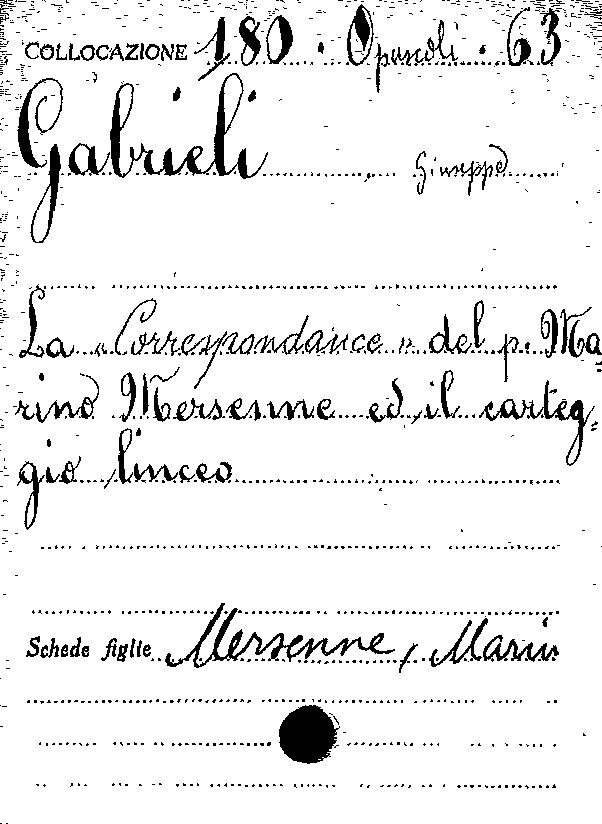 COLLOCAZIONE 180 . Opuscoli . 63
Gabrieli Giuseppe
La « Correspondance » del p. Ma=
rino Mersenne ed il carteg=
gio linceo
Schede figlie Mersenne, Marin